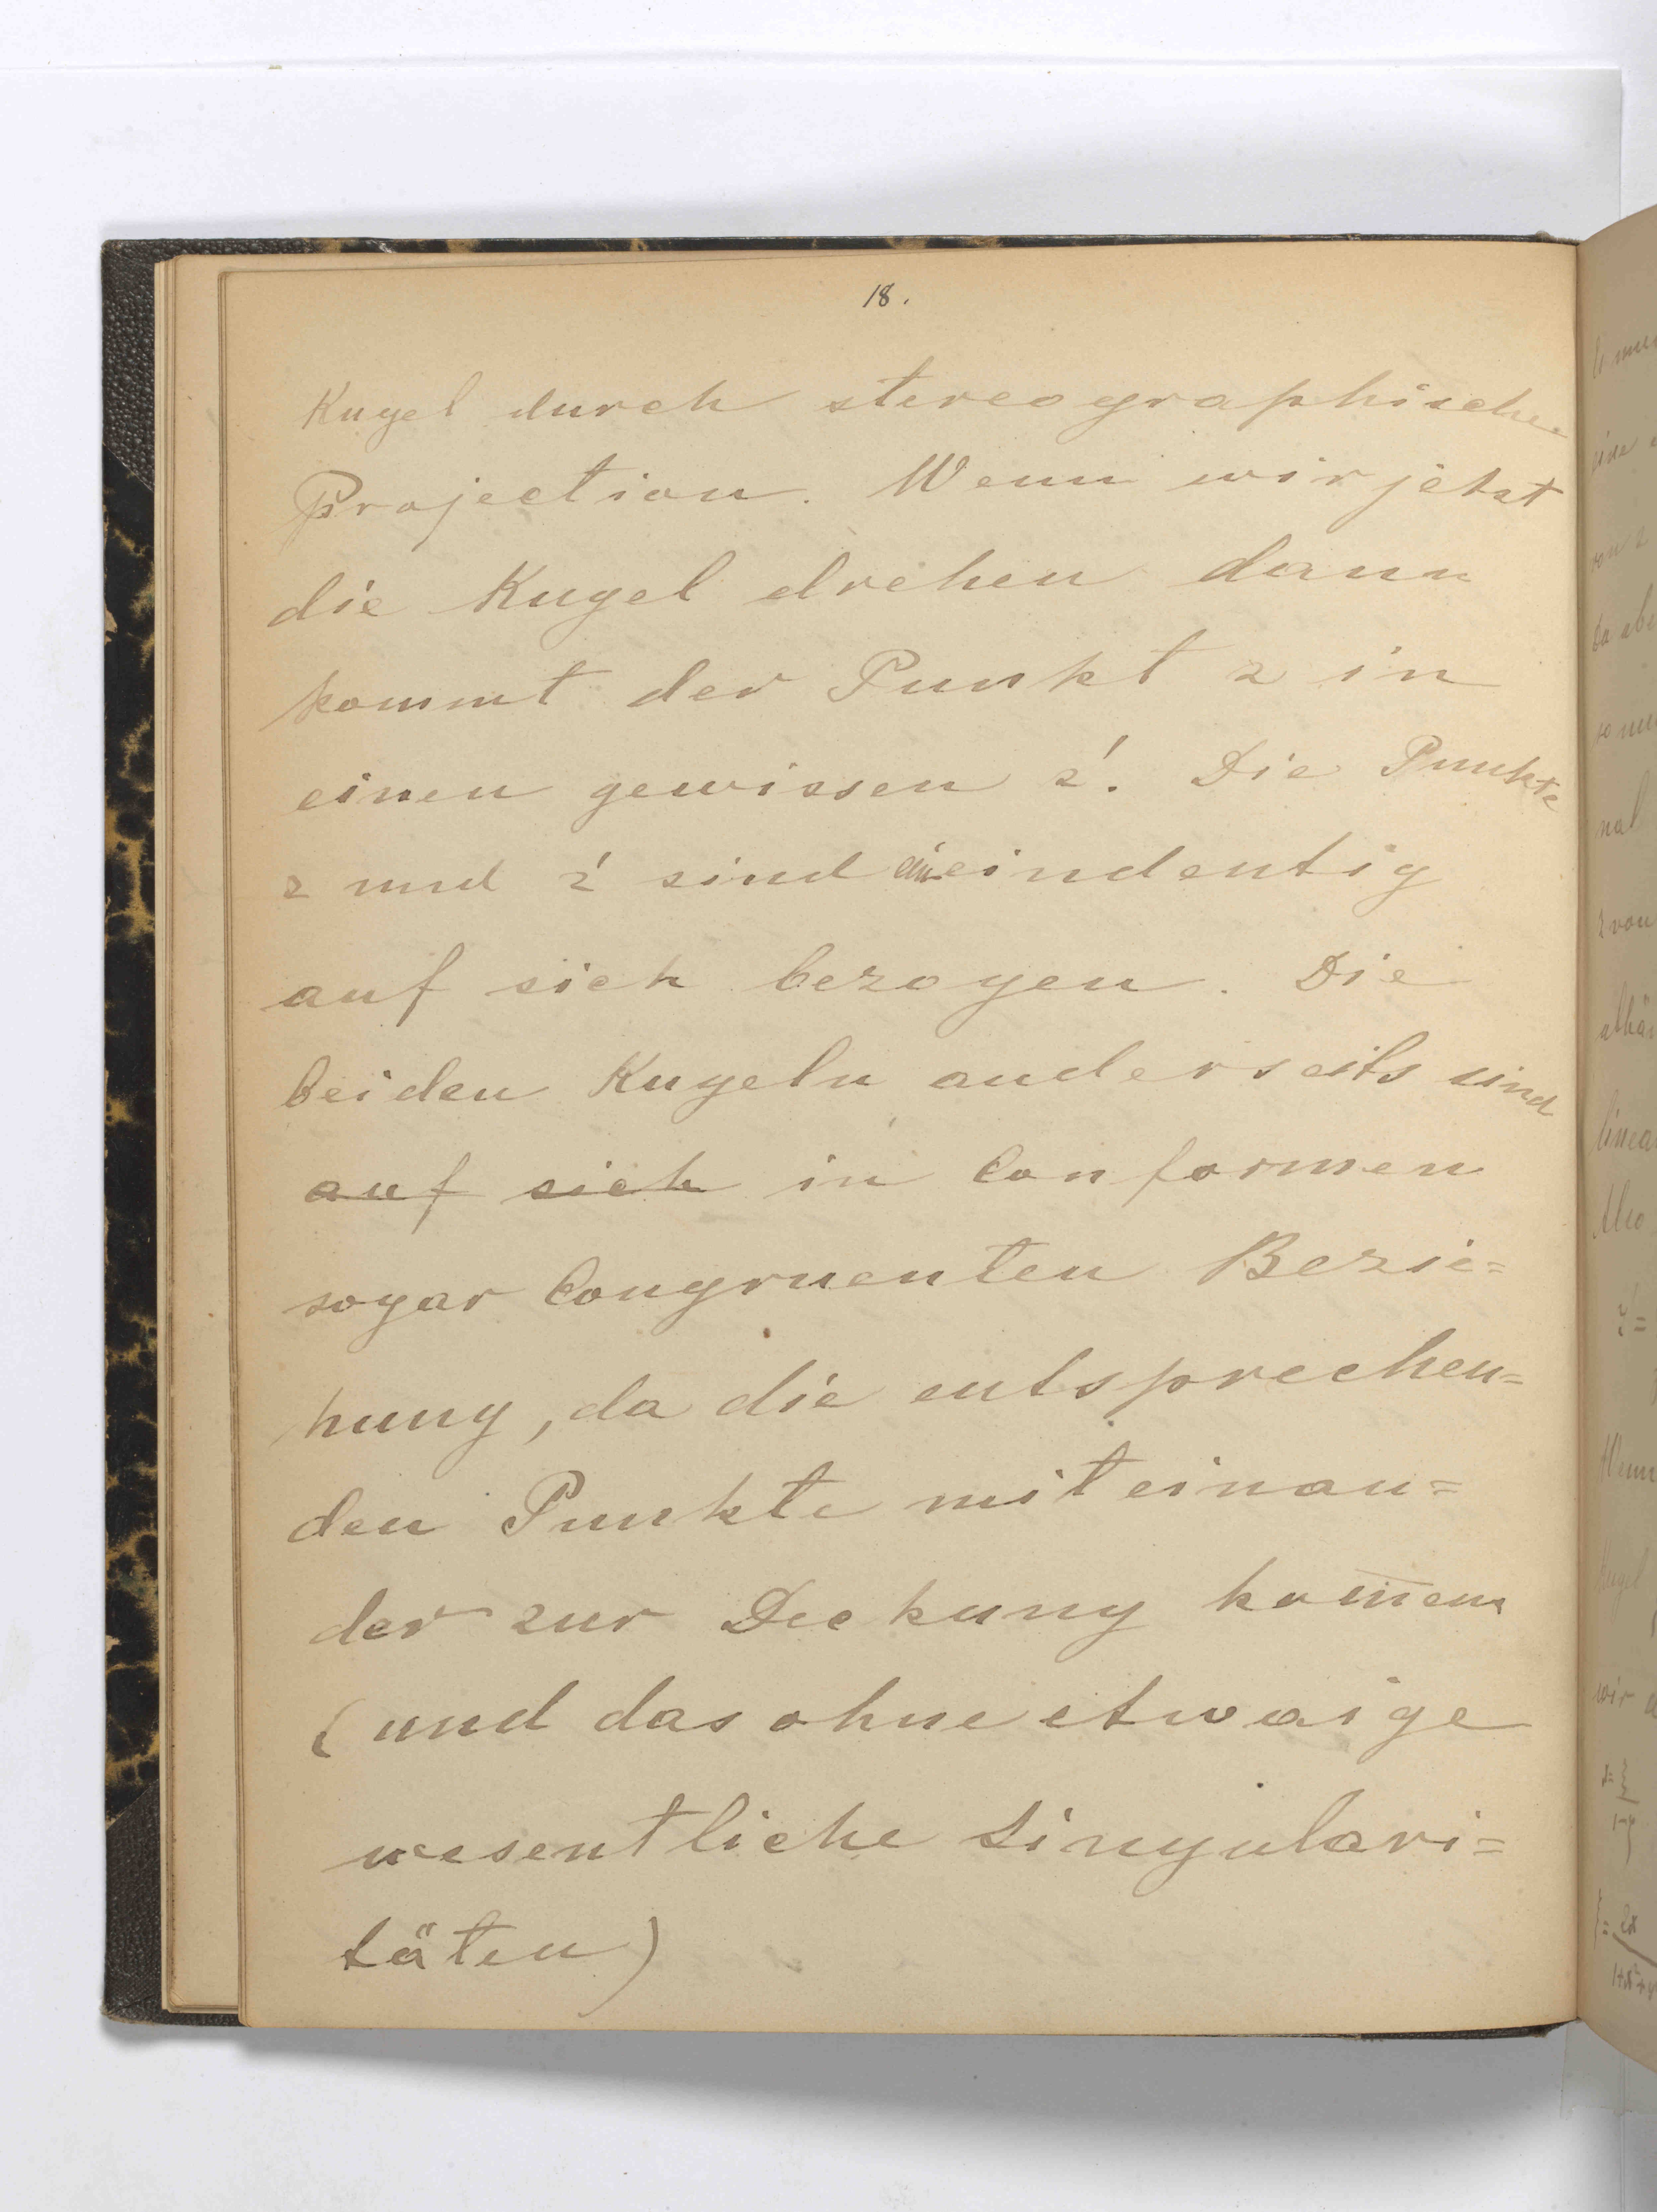 18.
Kugel durch stereographische
Projection. Wenn wir jetzt
die Kugel drehen dann
kommt der Punkt z in
einen gewissen z'. Die Punkte
z und z' sind ein eindeutig
auf sich bezogen. Die
beiden Kugeln anderseits sind
auf sich in Conformen
sogar Congruenten Bezie=
hung, da die entsprechen=
den Punkte mit einan=
der zur Deckung kom̅en
(und das ohne etwaige
wesentliche Singulari=
täten)